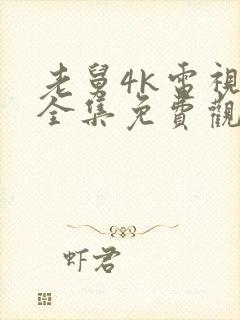 老舅4K電視
全集免費觀
虾君